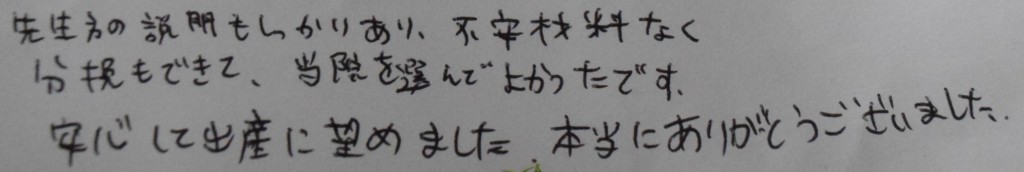 先生方の説明もしっかりあり、不安材料なく
分娩もできて、当院を選んでよかったです。
安心して出産に望めました。本当にありがとうございました。